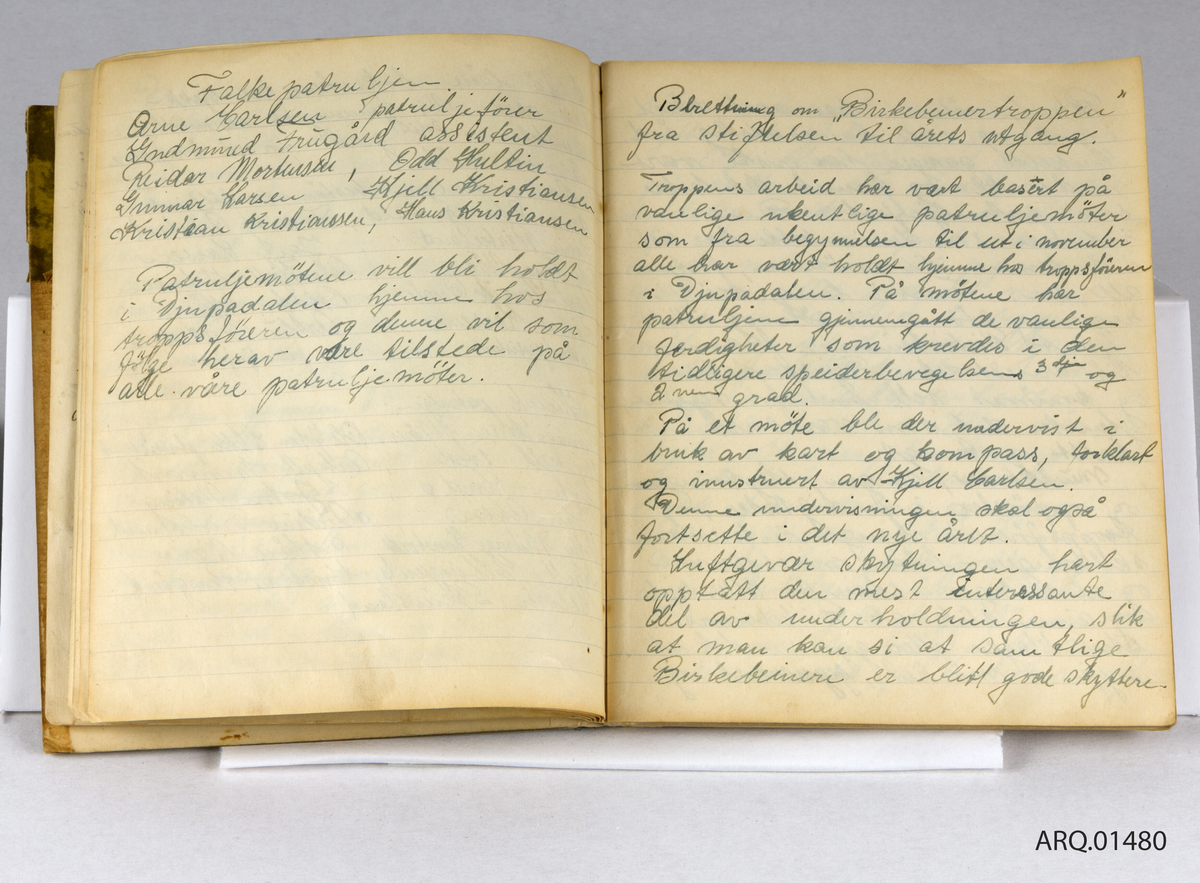 Falkepatruljen
Arne Carlsen patruljefører
Gudmund Frugård assistent
Reidar Mortensen, Odd Hultin
Gunnar Larsen Kjell Kristiansen
Kristian Kristianssen, Hans Kristiansen
Patruljemøtene vill bli holdt
i Djupadalen hjemme hos
troppsføreren og denne vil som
følge herav være tilstede på
alle våre patruljemøter.
Bberettning om „Birkebeinertroppen"
fra stiftelsen til årets utgang.
Troppens arbeid har vært basert på
vanlige ukentlige patruljemöter
som fra begynnelsen til ut i november
alle har vært holdt hjemme hos troppsföreren
i Djupadalen. På møtene har
patruljene gjennemgått de vanlige
ferdigheter som krevdes i den
tidligere speiderbevegelsens 3dje og
2nen grad.
På et møte ble der undervist i
bruk av kart og kompass, forklart
og innstruert av Kjell Carlsen.
Denne undervisningen skal også
fortsette i det nye året.
Luftgevær skytningen hart
opptatt den mest interessante
del av underholdningen, slik
at man kan si at samtlige
Birkebeinere er blitt gode skyttere
ARQ.01480